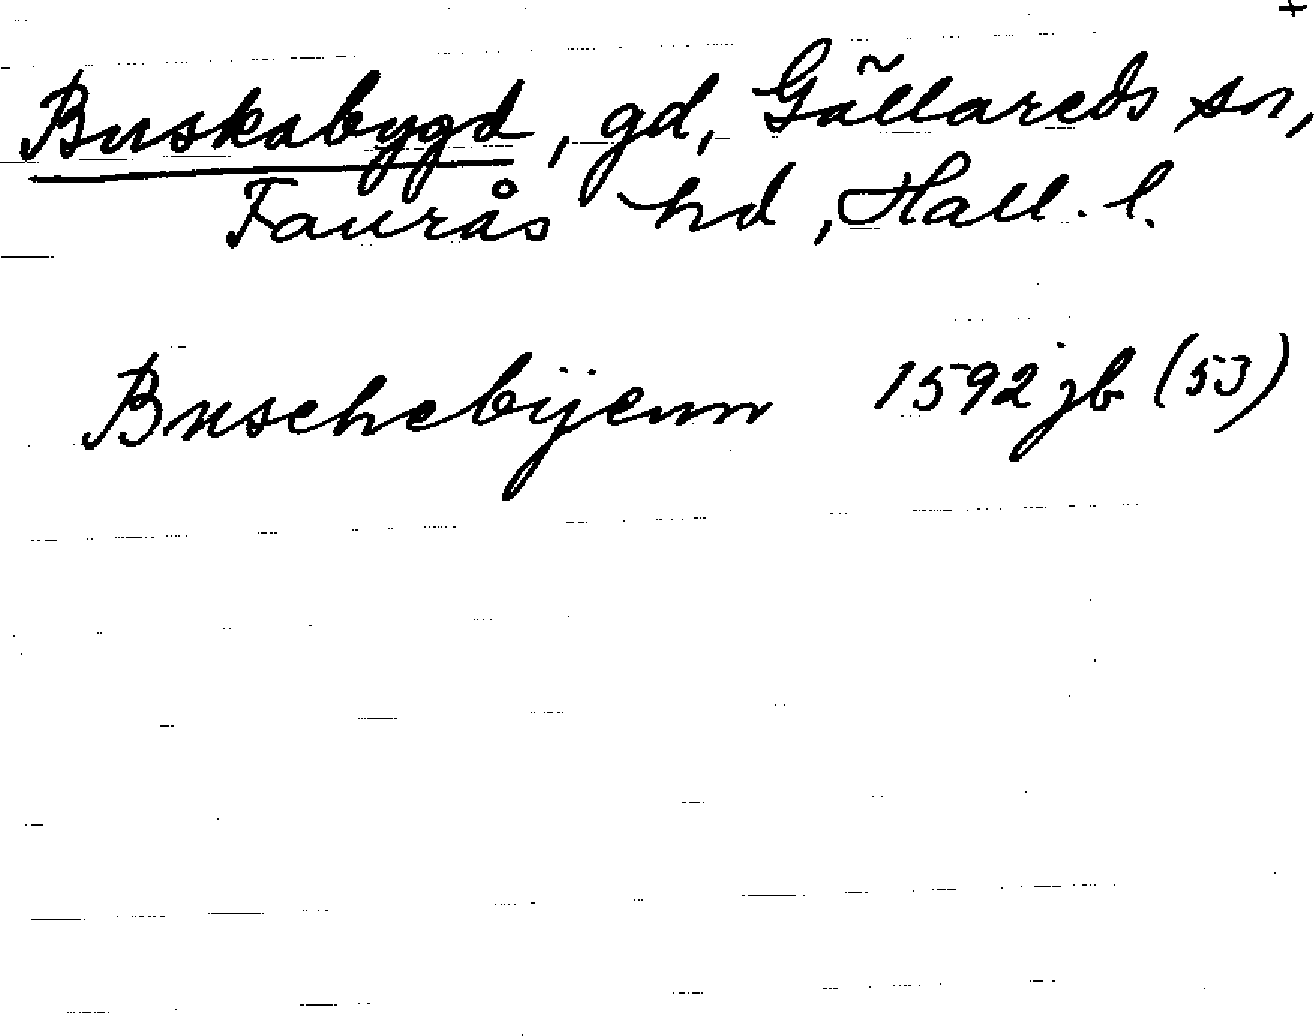 +
Buskabygd, gd, Gällareds sn,
Faurås hd, Hall. l.
Buschebÿenn 1592 jb (53)